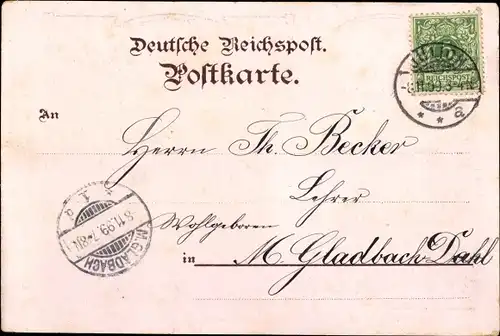 Deutsche Reichspost.
Postkarte.
REICHSPOST
8.11.99.3-4
* * a
An
Herrn Th. Becker
Lehrer
Wohlgeboren
in M. Gladbach-Dahl
8.11.99.7-8N.
M.GLADBACH
* 1